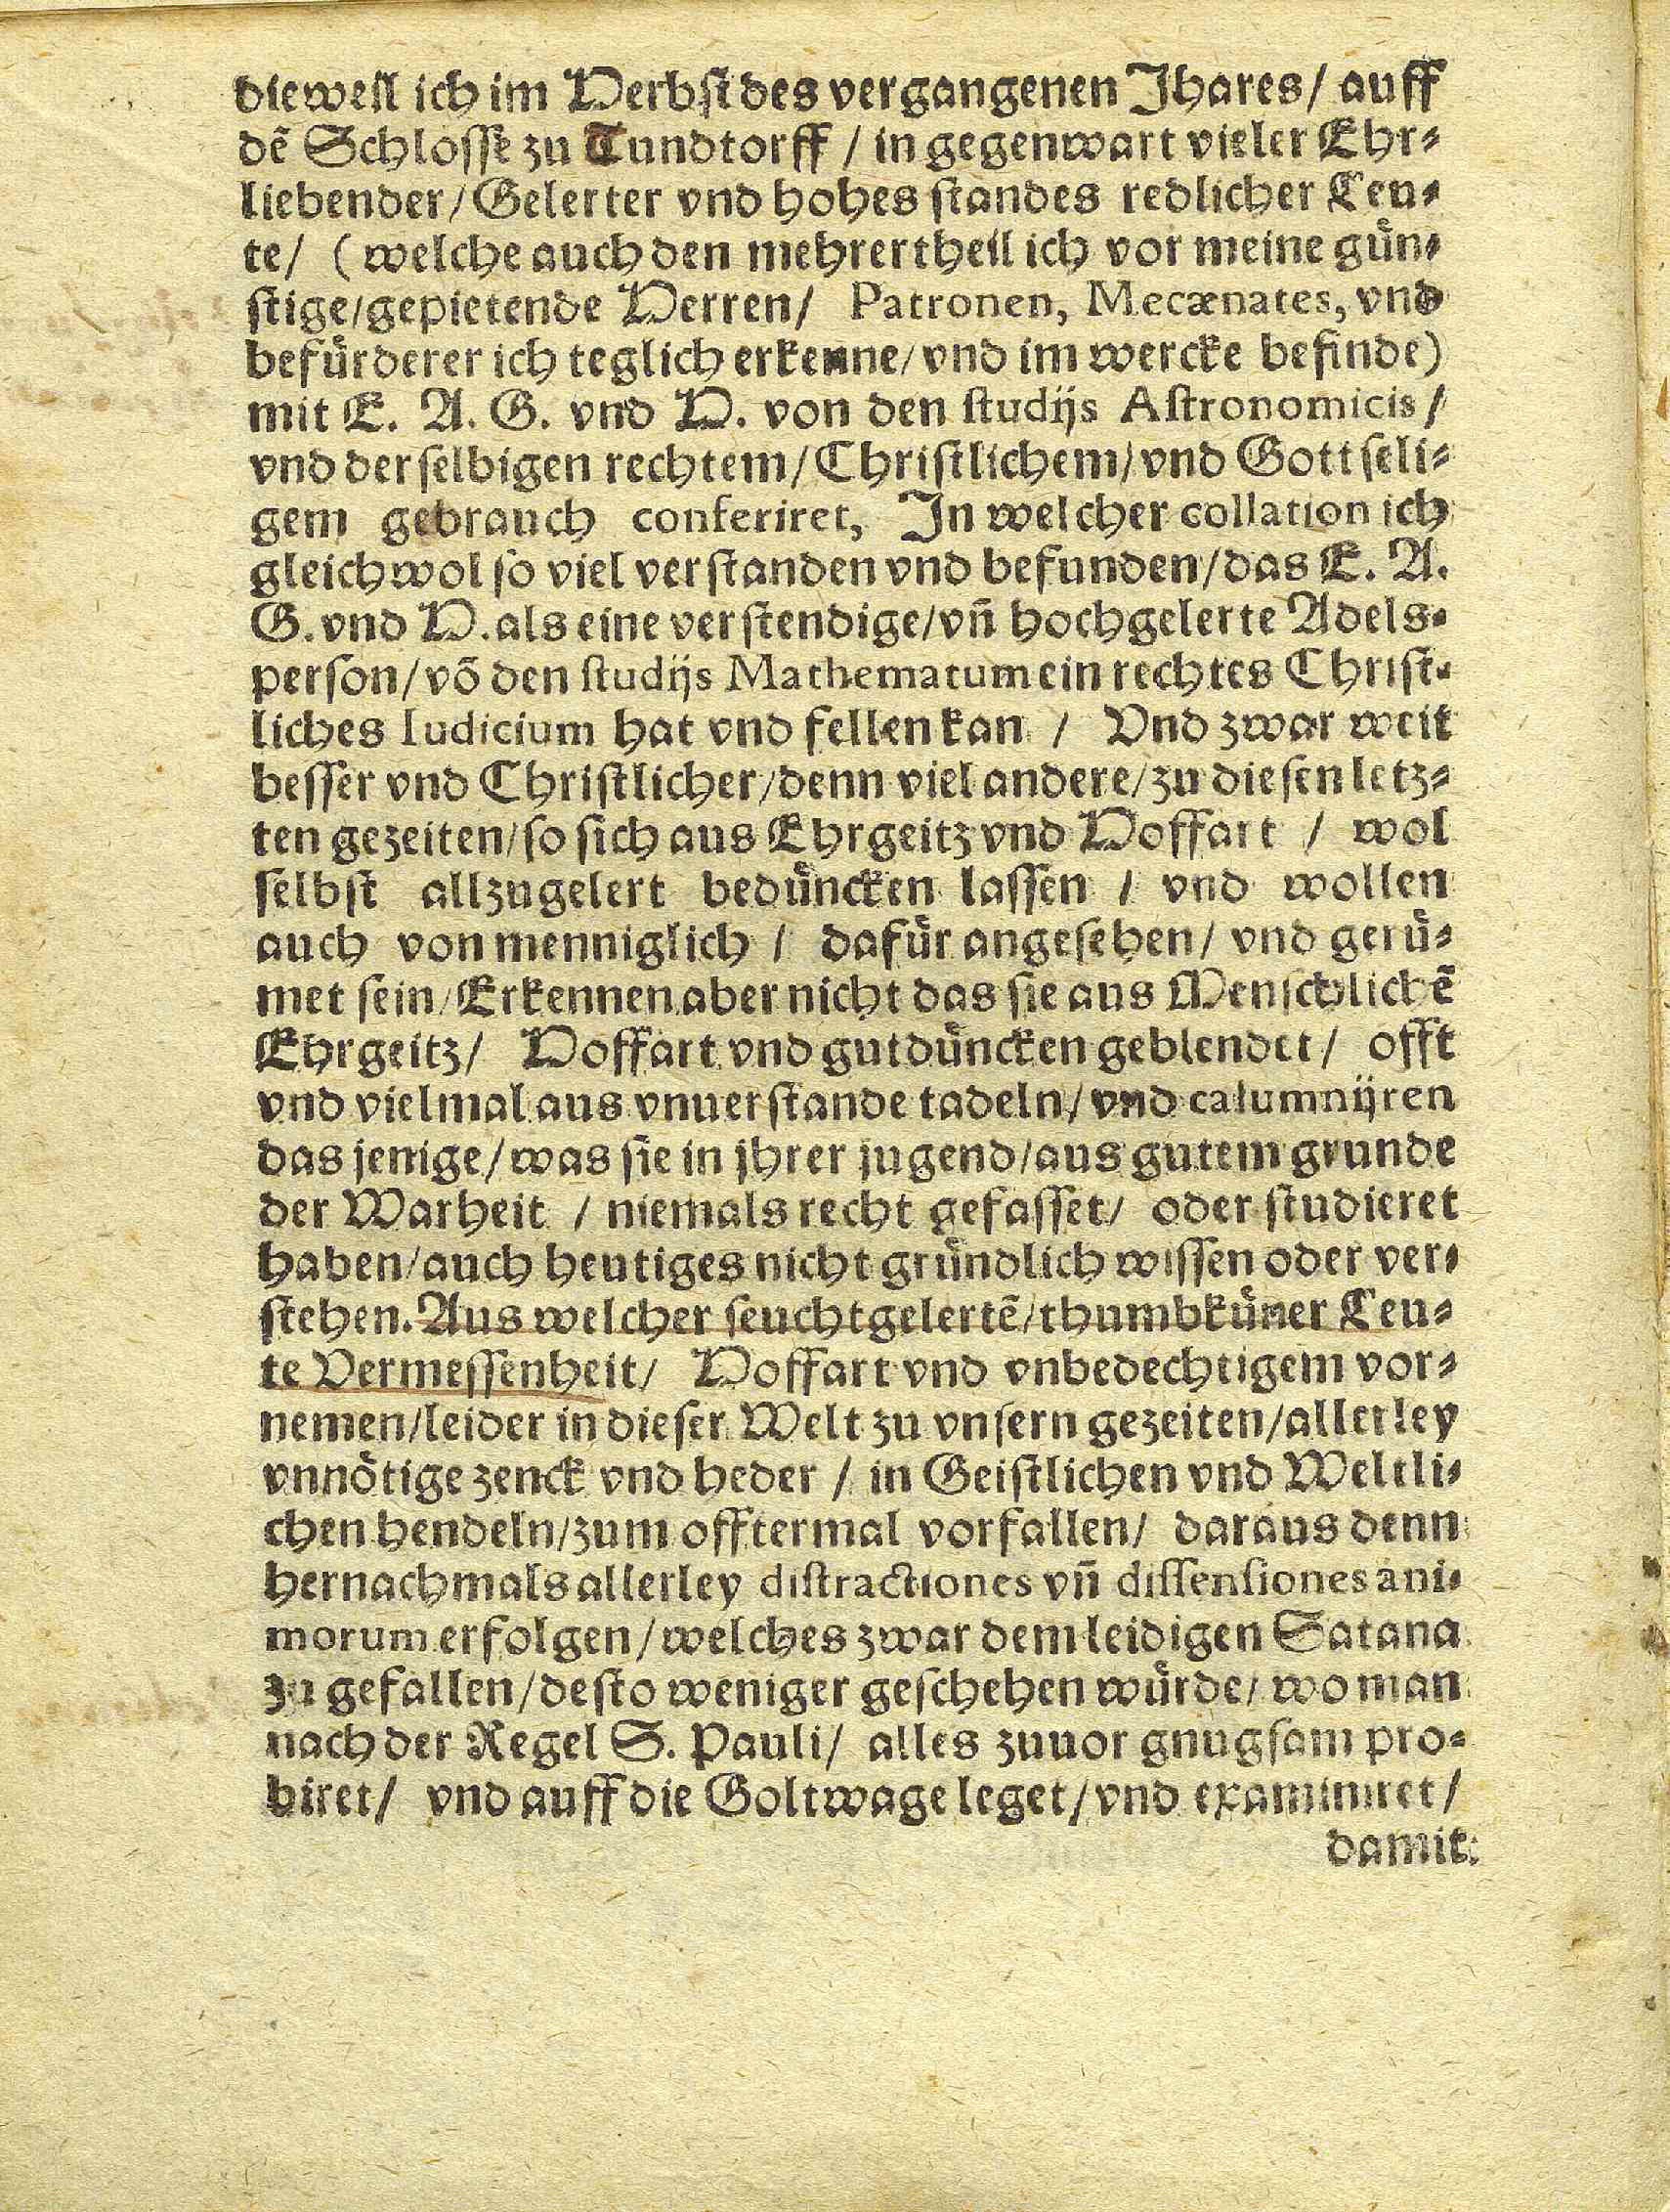 dieweil ich im Herbst des vergangenen Jhares/ auff
dē Schlosse zu Tundtorff / in gegenwart vieler Ehr⸗
liebender/ Gelerter vnd hohes standes redlicher Leu⸗
te/ ( welche auch den mehrertheil ich vor meine gün⸗
stige/ gepietende Herren/ Patronen, Mecænates, vnd
befürderer ich teglich erkenne/ vnd im wercke befinde)
mit E. A. G. vnd H. von den studijs Astronomicis /
vnd derselbigen rechtem/ Christlichem/ vnd Gottseli⸗
gem gebrauch conferiret, In welcher collation ich
gleichwol so viel verstanden vnd befunden/ das E. A.
G. vnd H. als eine verstendige/ vn̄ hochgelerte Adels⸗
person/ vō den studijs Mathematum ein rechtes Christ⸗
liches Iudicium hat vnd fellen kan / Vnd zwar weit
besser vnd Christlicher/ denn viel andere/ zu diesen letz⸗
ten gezeiten/ so sich aus Ehrgeitz vnd Hoffart / wol
selbst allzugelert bedüncken lassen / vnd wollen
auch von menniglich / dafür angesehen/ vnd gerü⸗
met sein/ Erkennen aber nicht das sie aus Menschlichē
Ehrgeitz/ Hoffart vnd gutdüncken geblendet/ offt
vnd vielmal aus vnuerstande tadeln/ vnd calumnijren
das jenige/ was sie in jhrer jugend/ aus gutem grunde
der Warheit / niemals recht gefasset/ oder studieret
haben/ auch heutiges nicht gründlich wissen oder ver⸗
stehen. Aus welcher seuchtgelertē/ thumbküner Leu⸗
te Vermessenheit/ Hoffart vnd vnbedechtigem vor⸗
nemen/ leider in dieser Welt zu vnsern gezeiten/ allerley
vnnötige zenck vnd heder / in Geistlichen vnd Weltli⸗
chen hendeln/ zum offtermal vorfallen/ daraus denn
hernachmals allerley distractiones vn̄ dissensiones ani⸗
morum erfolgen/ welches zwar dem leidigen Satana
zu gefallen/ desto weniger geschehen würde/ wo man
nach der Regel S. Pauli/ alles zuuor gnugsam pro⸗
biret/ vnd auff die Goltwage leget/ vnd examiniret/
damit